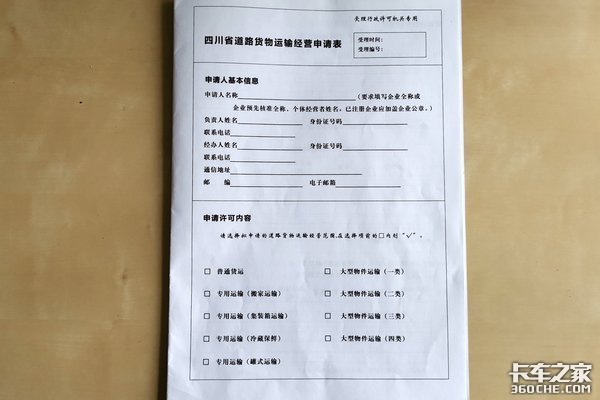 受理行政许可机关专用
四川省道路货物运输经营申请表
受理时间：
受理编号：
申请人基本信息
申请人名称（要求填写企业全称或
企业预先核准全称、个体经营者姓名，已注册企业应加盖企业公章。）
负责人姓名 身份证号码
联系电话
经办人姓名 身份证号码
联系电话
通信地址
邮 编 电子邮箱
申请许可内容
请选择拟申请的道路货物运输经营范围,在选择项前的□内划“√”。
□ 普通货运 □ 大型物件运输（一类）
□ 专用运输（搬家运输） □ 大型物件运输（二类）
□ 专用运输（集装箱运输） □ 大型物件运输（三类）
□ 专用运输（冷藏保鲜） □ 大型物件运输（四类）
□ 专用运输（罐式运输）
卡车之家
360che.com